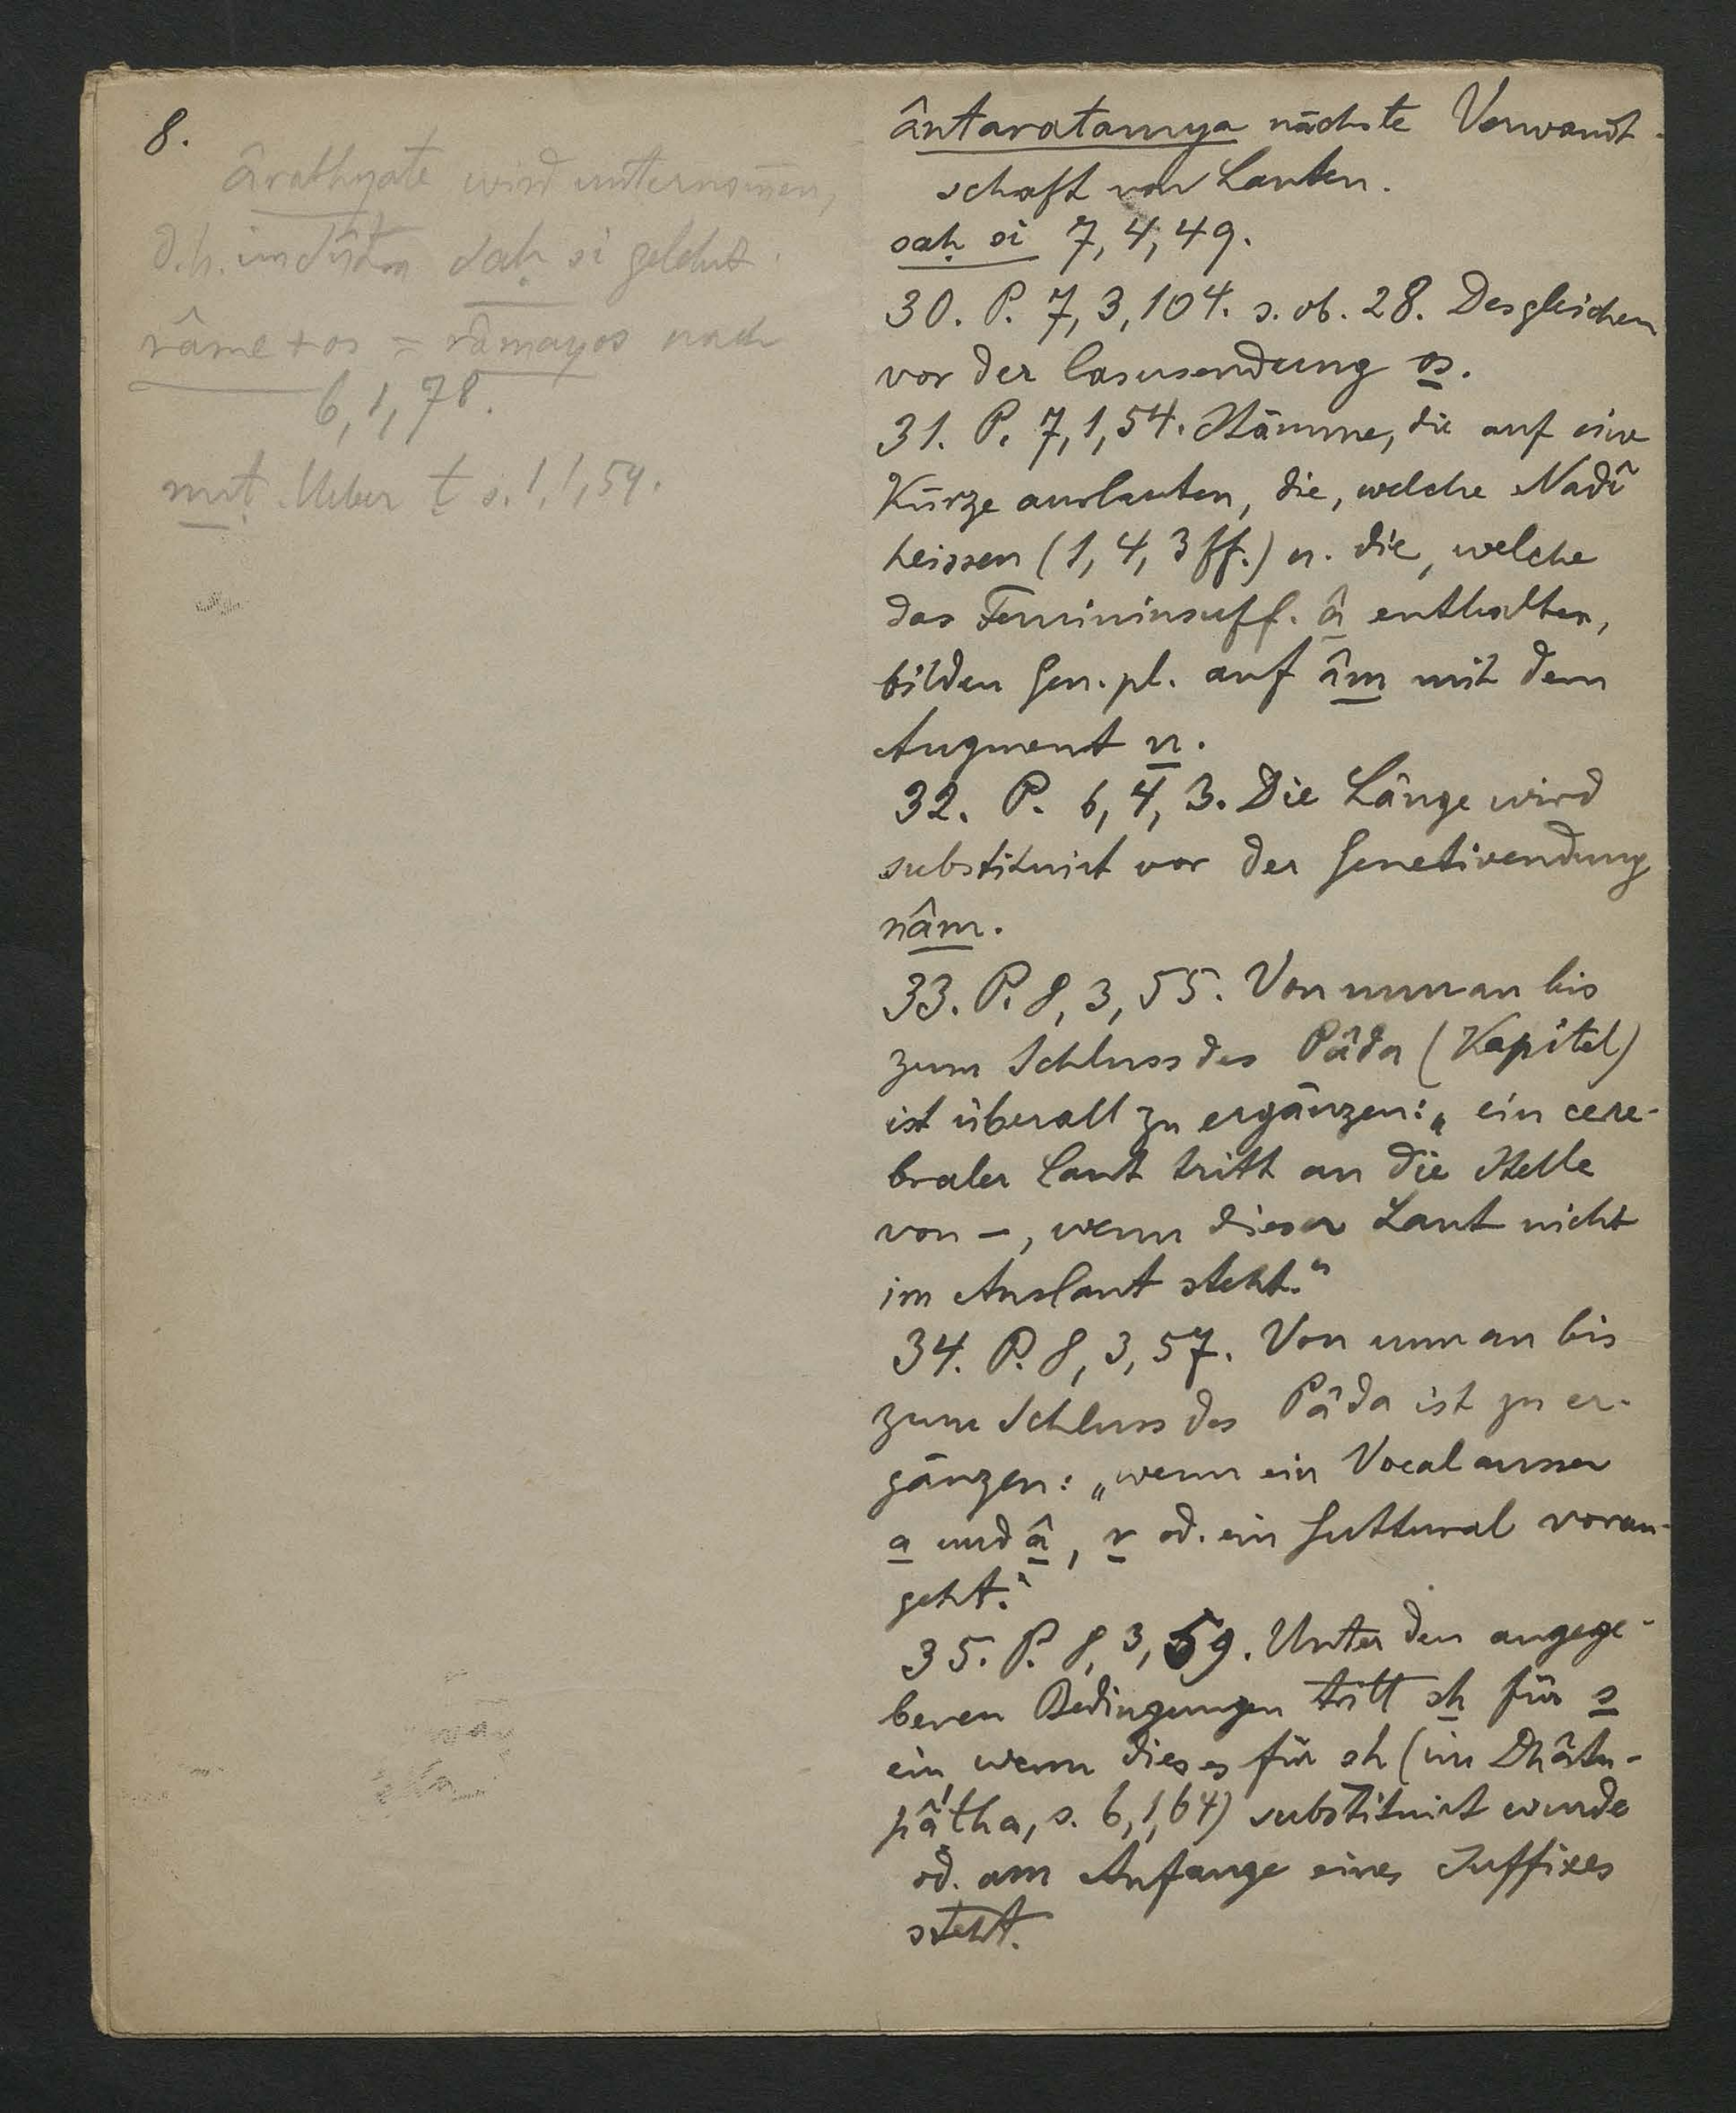 8.
ârathyate wird unternom̅en,
d.h. im Sûtra saḥ si gelehrt.
râme + os = râmayos nach
6, 1, 78.
nuṭ. Ueber ṭ s. 1, 1, 54.
ântaratamya nächste Verwandt-
schaft von Lauten.
saḥ si 7, 4, 49.
30. P. 7, 3, 104. s. ob. 28. Desgleichen
vor der Casusendung os.
31. P. 7, 1, 54. Stämme, die auf eine
Kürze auslauten, die, welche Nadî
heissen (1, 4, 3 ff.) u. die, welche
das Femininsuff. â enthalten,
bilden Gen. pl. auf âm mit dem
Augment n.
32. P. 6, 4, 3. Die Länge wird
substituirt vor der Genetivendung
nâm.
33. P. 8, 3, 55. Von nun an bis
zum Schluss des Pâda (Kapitel)
ist überall zu ergänzen: „ein cere-
braler Laut tritt an die Stelle
von –, wenn dieser Laut nicht
im Auslaut steht.“
34. P. 8, 3, 57. Von nun an bis
zum Schluss des Pâda ist zu er-
gänzen: „wenn ein Vocal ausser
a und â, r od. ein Guttural voran-
geht.“
35. P. 8, 3, 59. Unter den angege-
benen Bedingungen tritt sh für s
ein, wenn dieses für sh (im Dhâtu-
pâṭha, s. 6, 1, 64) substituirt wurde
od. am Anfange eines Suffixes
steht.